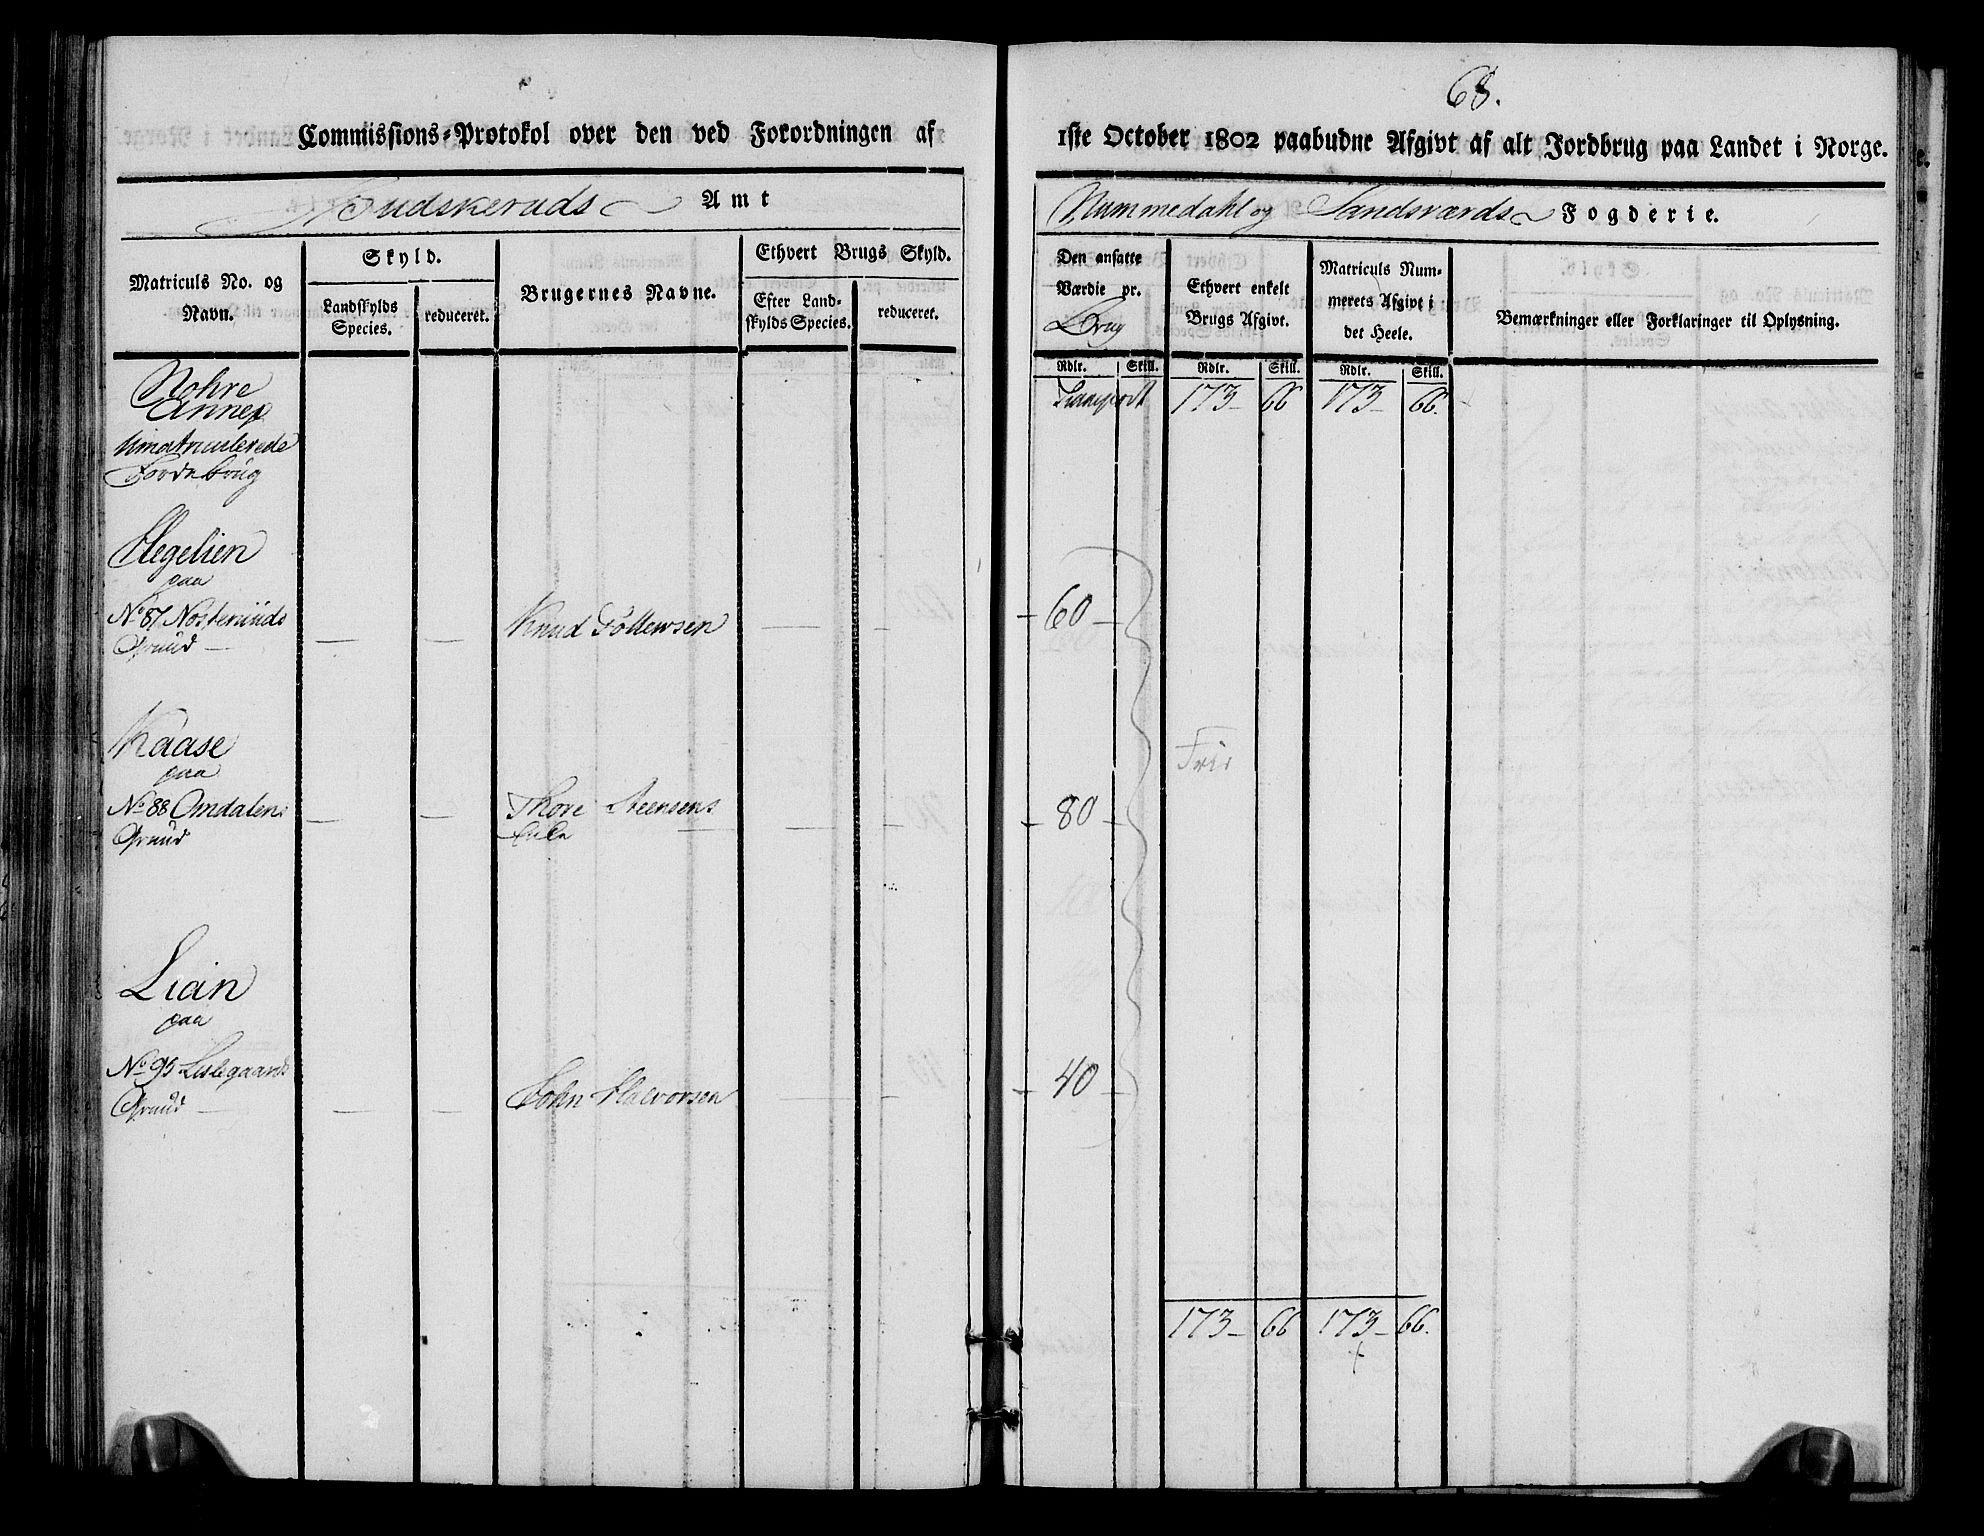 68.
Commissions-Protokol over den ved Forordningen af
1ste October 1802 paabudne Afgivt af alt Jordbrug paa Landet i Norge.
Budskeruds Amt
Nummedahl og Sandsværds Fogderie.
Matriculs No. og Navn.
Skyld.
Landskylds Species.
reduceret.
Brugernes Navne.
Ethvert Brugs Skyld.
Efter Landskylds Species.
reduceret.
Den ansatte Værdie pr. Brug
Ethvert enkelt Brugs Afgivt.
Matriculs Nummerets Afgivt i det Heele.
Bemærkninger eller Forklaringer til Oplysning.
Rdlr. Skill. Rdlr. Skill. Rdlr. Skill.
Nohre
Annex
Umatriculerede
Jordebrug
Transport 173 66 173 66.
Hegelien
paa
No 87 Nosteruds
Grund
Knud
60
Kaase
paa
No 88 Omdalens
Grund
Thore Steensens
80
Frie
Lian
paa
No 95 Lislegaards
Grund
John Halvorsen
40
173 66 173 66.